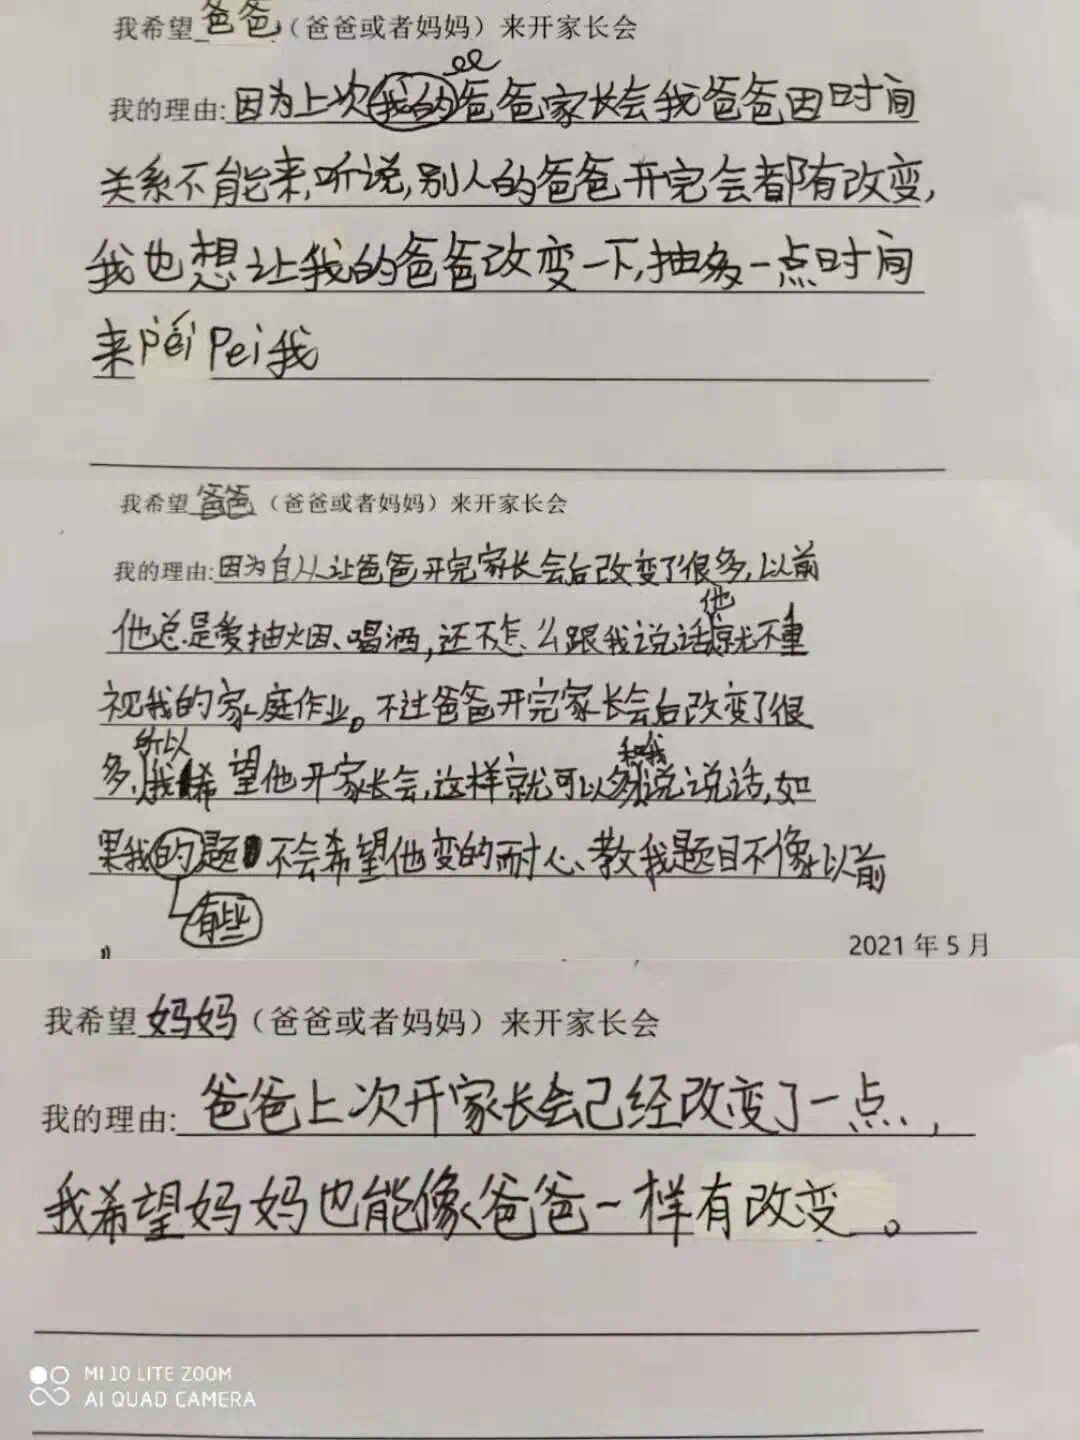 我希望爸爸（爸爸或者妈妈）来开家长会
我的理由:因为上次我的爸爸家长会我爸爸因时间
关系不能来,听说,别人的爸爸开完会都有改变,
我也想让我的爸爸改变一下,抽多一点时间
来péi Pei我
我希望爸爸（爸爸或者妈妈）来开家长会
我的理由:因为自从让爸爸开完家长会后改变了很多,以前
他
他总是爱抽烟、喝酒,还不怎么跟我说话,就不重
视我的家庭作业。不过爸爸开完家长会后改变了很
所以 和我
多,我希望他开家长会,这样就可以多说说话,如
果我的题不会希望他变的耐心、教我题目不像以前
有些
2021年5月
我希望妈妈（爸爸或者妈妈）来开家长会
我的理由:爸爸上次开家长会己经改变了一点,
我希望妈妈也能像爸爸一样有改变。
MI 10 LITE ZOOM
AI QUAD CAMERA